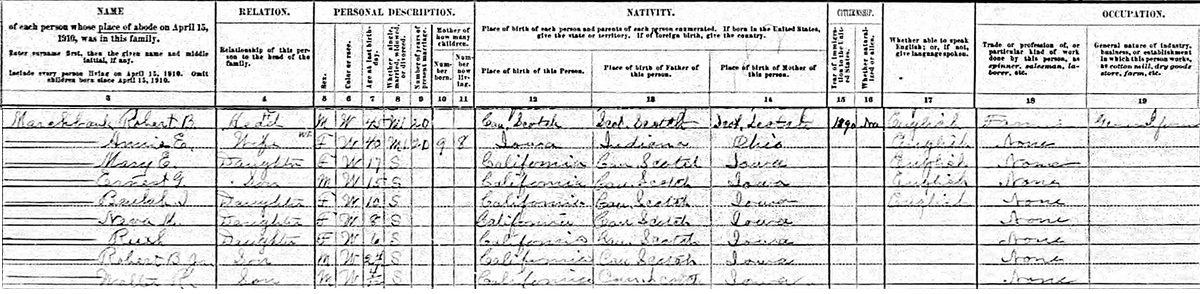 NAME RELATION. PERSONAL DESCRIPTION. NATIVITY. CITIZENSHIP. OCCUPATION.
of each person whose place of abode on April 15, 1910, was in this family.
Enter surname first, then the given name and middle initial, if any.
Include every person living on April 15, 1910. Omit children born since April 15, 1910.
Relationship of this person to the head of the family.
Sex.
Color or race.
Age at last birthday.
Whether single, married, widowed, or divorced.
Number of years of present marriage.
Mother of how many children.
Number born.
Number now living.
Place of birth of each person and parents of each person enumerated. If born in the United States, give the state or territory. If of foreign birth, give the country.
Place of birth of this Person.
Place of birth of Father of this person.
Place of birth of Mother of this person.
Year of immigration to the United States.
Whether naturalized or alien.
Whether able to speak English; or, if not, give language spoken.
Trade or profession of, or particular kind of work done by this person, as spinner, salesman, laborer, etc.
General nature of industry, business, or establishment in which this person works, as cotton mill, dry goods store, farm, etc.
3 4 5 6 7 8 9 10 11 12 13 14 15 16 17 18 19
Marchbank Robert B Head M W 45 M1 20 Can. Scotch Scot. Scotch Scot. Scotch 1890 Na English
Annie E. Wife F W 40 M1 20 9 8 Iowa Indiana Ohio English None
Mary E. Daughter F W 17 S California Can Scotch Iowa English None
Ernest G Son M W 15 S California Can Scotch Iowa English None
Beulah I Daughter F W 10 S California Can Scotch Iowa English None
Neva Daughter F W 8 S California Can Scotch Iowa None
Ruth Daughter F W 6 S California Can Scotch Iowa None
Robert B Jr Son M W S California Can Scotch Iowa None
Walter R. Son M W S California Can Scotch Iowa None